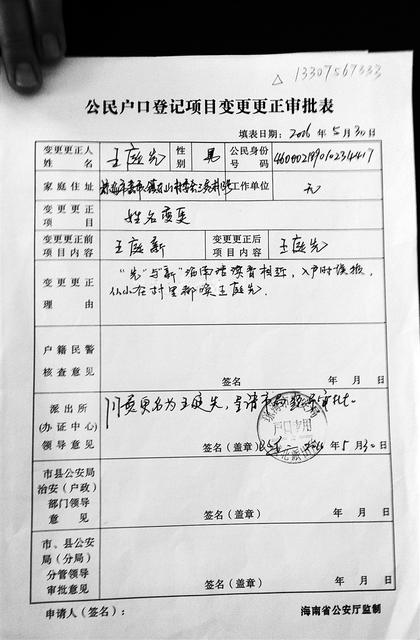 △ 13307567333
公民户口登记项目变更更正审批表
填表日期：2016 年 5 月 30 日
变更更正人姓名 王庭先 性别 男 公民身份号码
家庭住址 工作单位 无
变更更正项目 姓名变更
变更更正前项目内容 王庭新 变更更正后项目内容 王庭先
变更更正理由 “先”与“新”海南话读音相近，入户时误报，
从小在村里都唤王庭先.
户籍民警核查意见
签名 年 月 日
派出所(办证中心)领导意见 同意更名为王庭先，呈请市局审批.
户口专用
签名（盖章） 2016 年 5 月 30 日
市县公安局治安（户政）部门领导意见
签名（盖章） 年 月 日
市、县公安局（分局）分管领导审批意见
签名（盖章） 年 月 日
申请人（签名）： 海南省公安厅监制